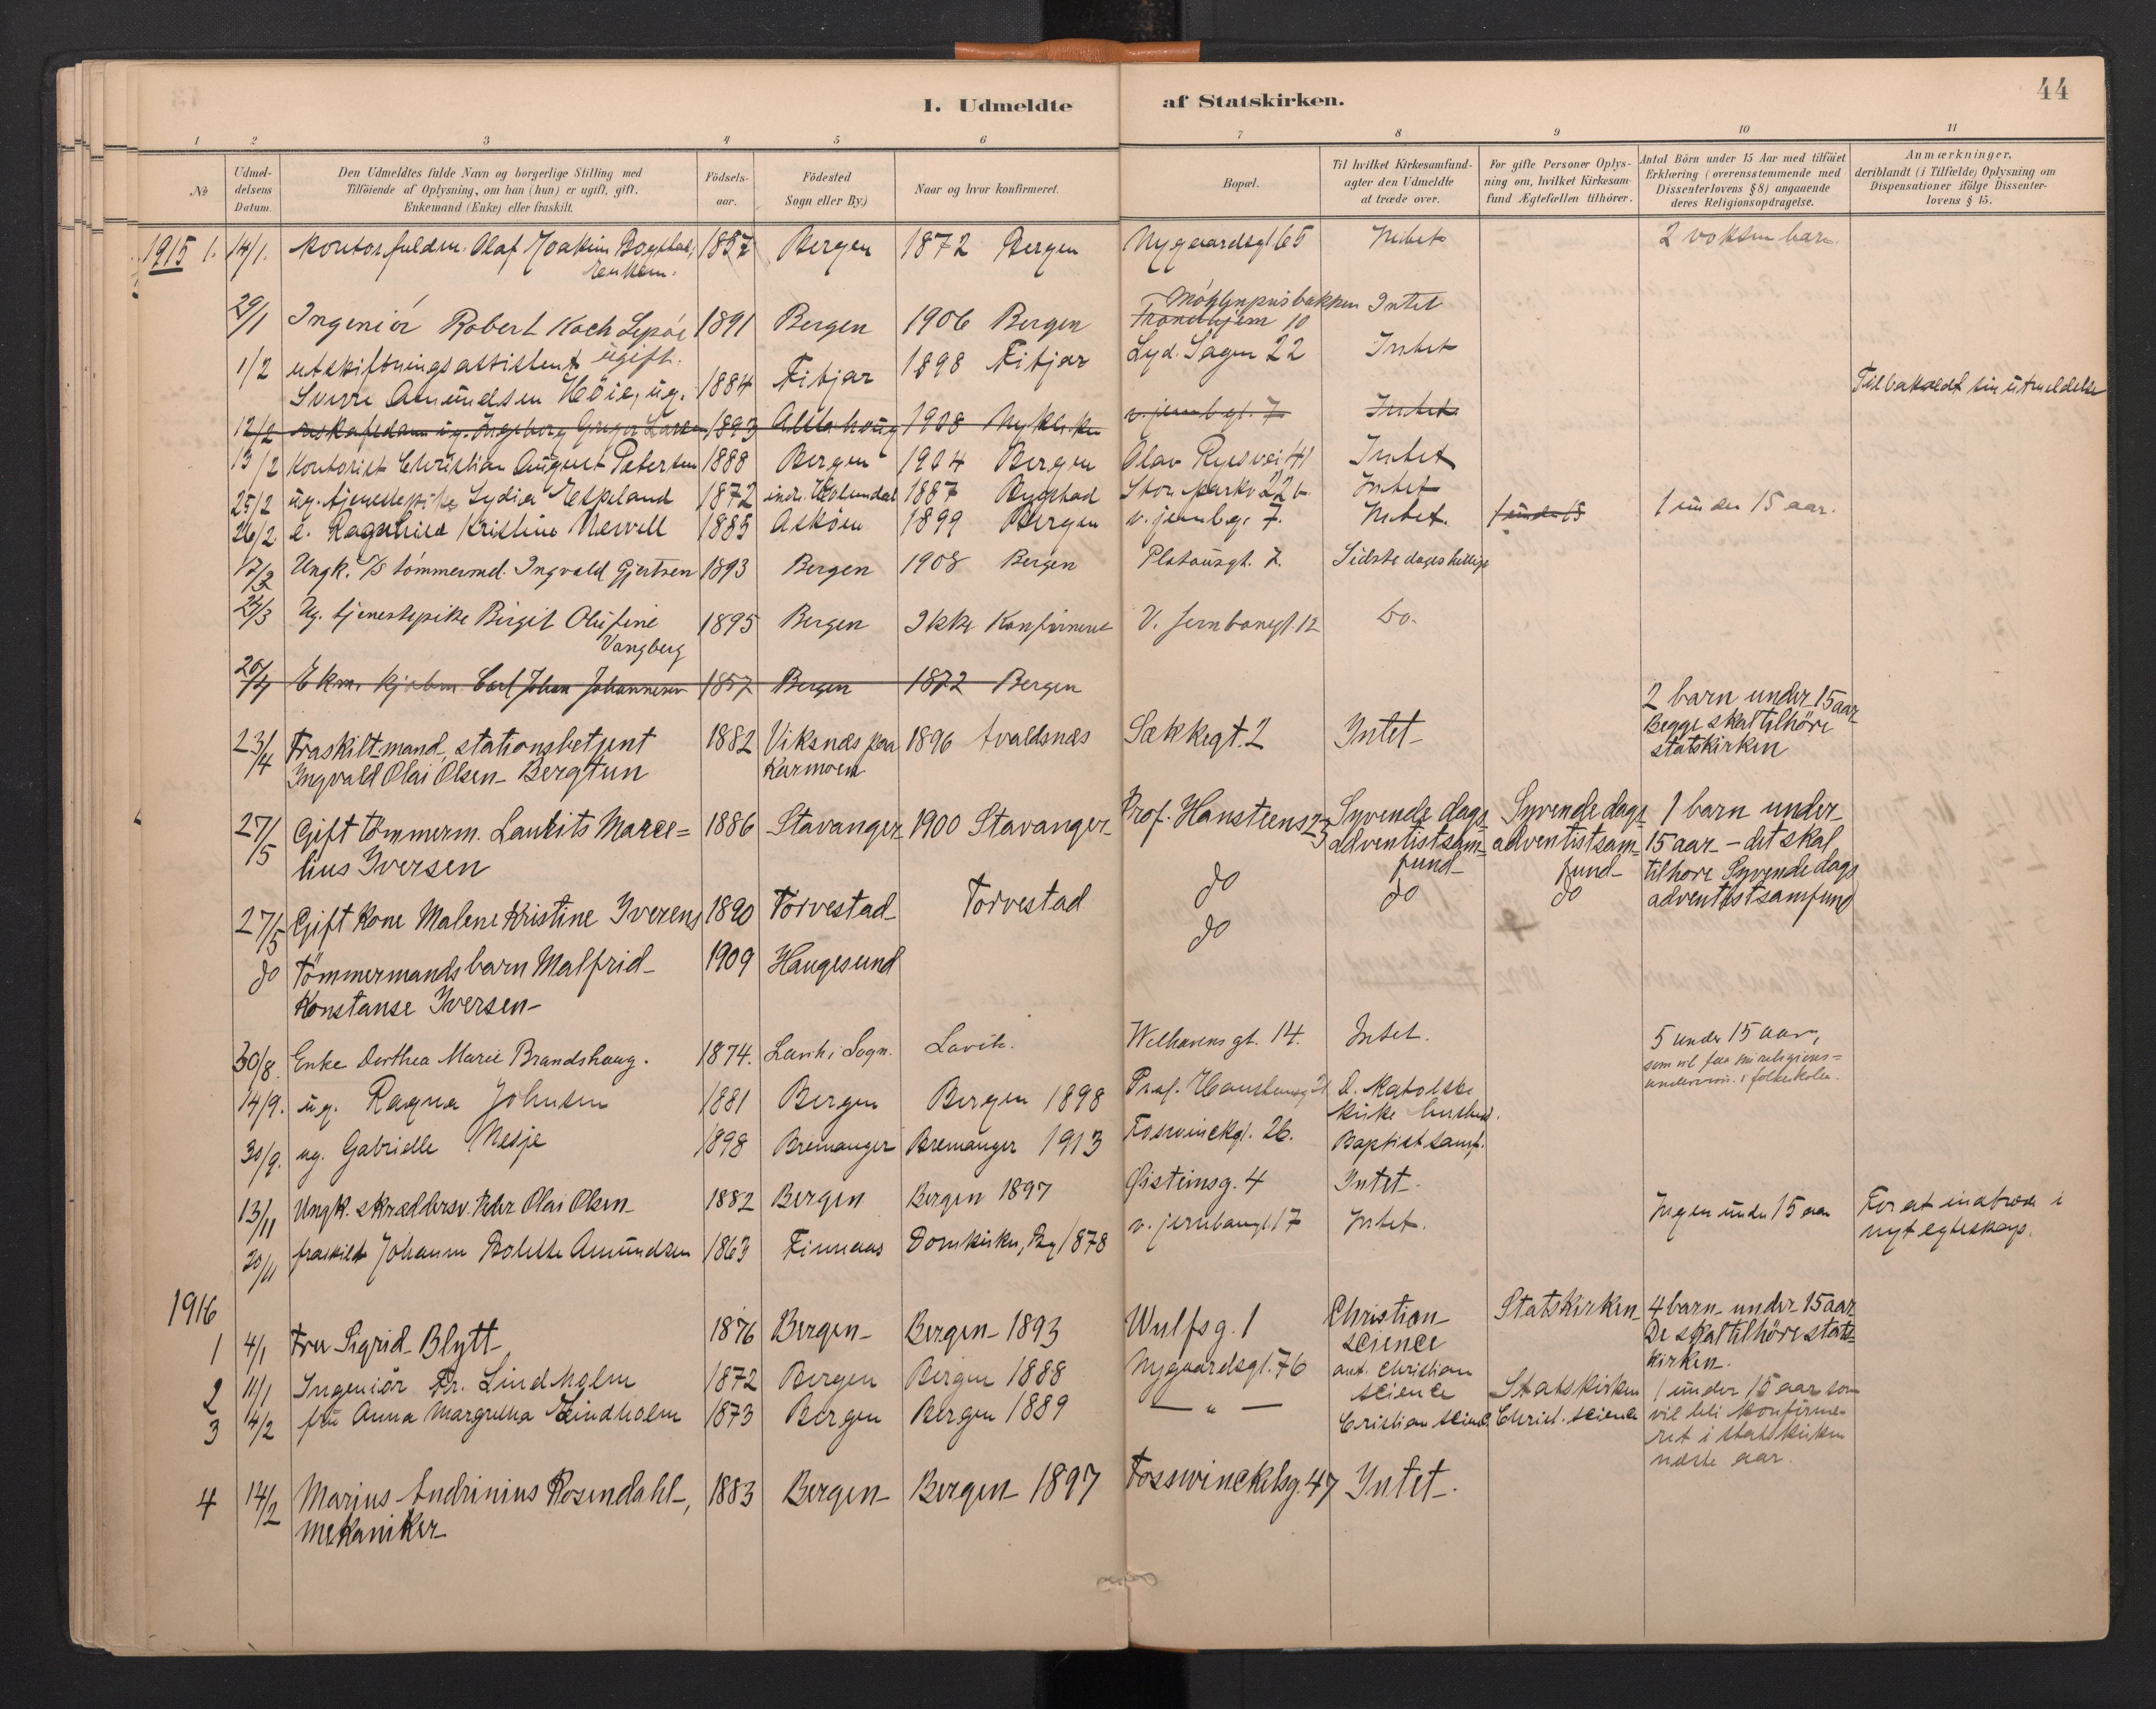 44
I. Udmeldte af Statskirken.
1 2 3 4 5 6 7 8 9 10 11
No
Udmel-
delsens
Datum.
Den Udmeldtes fulde Navn og borgerlige Stilling med
Tilföiende af Oplysning, om han (hun) er ugift, gift,
Enkemand (Enke) eller fraskilt.
Födsels-
aar.
Födested
Sogn eller By.)
Naar og hvor konfirmeret.
Bopæl.
Til hvilket Kirkesamfund-
agter den Udmeldte
at træde over.
For gifte Personer Oplys-
ning om, hvilket Kirkesam-
fund Ægtefællen tilhörer.
Antal Börn under 15 Aar med tilföiet
Erklæring (overensstemmende med
Dissenterlovens § 8) angaaende
deres Religionsopdragelse.
Anmærkninger,
deriblandt (i Tilfælde) Oplysning om
Dispensationer ifölge Dissenter-
lovens § 15.
1915 1. 14/1. Kontorfuldm. Olaf Joakim 1857 Bergen 1872 Bergen Nygaardsgt 65 Intet 2 voksne barn.
29/1 Ingeniör Robert Koch 1891 Bergen 1906 Bergen Intet
Trondhjem 10
ugift.
1/2 utskiftningsassistent 1898 Fitjar Lyd. Sagen 22 Intet
Sverre Amundsen Höie, ug. 1884 Fitjar
Tilbakaldt sin utmeldelse
12/2 ug. Ingeborg 1893 1908 Nykirken v. jernb.gt. 7 Intet
13/2 Kontorist Christian August Petersen 1888 Bergen 1904 Bergen Olav Ryesvei 41 Intet
25/2 ug. tjenestepike Lydia Espeland 1872 indr. Holmedal 1887 Bygstad Store Parkv 22 b. Intet
26/2 Ragnhild Kristine 1885 Asköen 1899 Bergen v. jernb.g. 7. Intet. 1 under 15 1 under 15 aar.
17/3 Ungk. tömmermd. Ingvald Gjertsen 1893 Bergen 1908 Bergen Platousgt. 7. Sidste dages hellige
24/3 Ug. tjenestepike Birgit Olufine 1895 Bergen Ikke Konfirmeret V. Jernbanegt. 12 Do.
Vangberg
20/4 Ekm. Carl Johan Johannesen 1857 Bergen 1872 Bergen
23/4 Fraskilt mand, stationsbetjent 1882 Viksnæs paa 1896 Avaldsnæs Sækkegt. 2 Intet
Ingvald Olai Olsen Bergtun Karmoen
2 barn under 15 aar
Begge skal tilhöre
statskirken
27/5 Gift tömmerm. Lauritz Marce= 1886 Stavanger 1900 Stavanger Prof. Hansteens 23 Syvende dags Syvende dags 1 barn under
lius Iversen adventistsam= adventistsam= 15 aar - det skal
fund fund tilhore Syvende dags
adventistsamfund
27/5 Gift Kone Malene Kristine Iversen 1890 Torvestad Torvestad do do do
do Tömmermandsbarn Malfrid 1909 Haugesund do
Konstanse Iversen
30/8. Enke Dorthea Marie Brandshaug. 1874. Lavik i Sogn. Lavik. Welhavens gt. 14. Intet. 5 under 15 aar,
som vil faa sin religions=
underv. i folkeskolen.
14/9. ug. Ragna Johnsen 1881 Bergen Bergen 1898 Prof. Hansteensg 21 D. Katolske
kirke
30/9. ug. Gabrielle Nesje 1898 Bremanger Bremanger 1913 Fosswinckgt. 26. Baptist samf.
13/11 Ungk. skræddersv. Peder Olai Olsen 1882 Bergen Bergen 1897 Øisteinsg. 4 Intet
20/11 fraskilt Johanne Bolette Amundsen 1863 Finnaas Domkirken, Bg 1878 v. jernbanegt. 17 Intet. Ingen under 15 aar For at indtræde i
nyt egteskap.
1916
1 4/1 Fru Sigrid Blytt 1876 Bergen Bergen 1893 Wulfsg. 1 Christian Statskirken 4 barn under 15 aar
science De skal tilhöre stats=
kirken.
2 11/1 Ingeniör Fr. Lindholm 1872 Bergen Bergen 1888 Nygaardsgt. 76 ant. Christian
science Statskirken 1 under 15 aar som
3 14/2 fru Anna Margretha Lindholm 1873 Bergen Bergen 1889 — " — Cristian science Christ. science vil bli konfirme-
ret i statskirken
næste aar.
4 14/2 Marius Andrinius Rosendahl, 1883 Bergen Bergen 1897 Fosswinckelsg. 47 Intet.
mekaniker